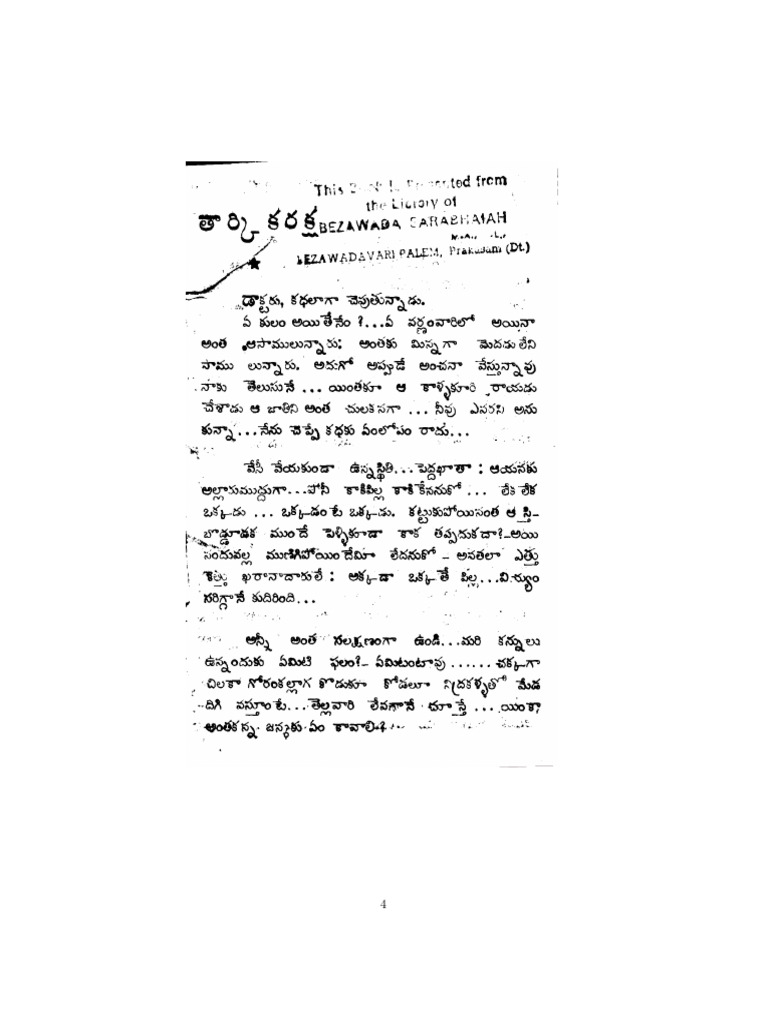 This Book Is Presented from
the Library of
తార్కికరక్ష
BEZAWADA SARABHAIAH
BEZAWADAVARI PALEM, Prakasam (Dt.)
డాక్టరు, కథలాగా చెపుతున్నాడు.
ఏ కులం అయితేనేం ?...ఏ వర్ణంవారిలో అయినా
అంత ఆసాములున్నారు; అంతకు మిన్నగా మెదడులేని
సాములున్నారు. అదుగో అప్పుడే అంచనా వేస్తున్నావు
నాకు తెలుసునే ... యింతకూ ఆ కాళ్ళకూరి రాయడు
చేశాడు ఆ జాతిని అంత చులకనగా ... నీవు ఎవరని అను
కున్నా...నేను చెప్పే కథకు ఏంలోపం రాదు...
వేసీ వేయకుండా ఉన్నస్థితి...పెద్దఖాతా : ఆయనకు
అల్లారుముద్దుగా...పోనీ కాకిపిల్ల కాకికేననుకో ... లేక లేక
ఒక్కడు ... ఒక్కడంటే ఒక్కడు. కట్టుకుపోయినంత ఆ స్తి-
బొడ్డూడక ముందే పెళ్ళికూడా కాక తప్పదుకదా?-అయి
నందువల్ల మునిగిపోయిందేమీ లేదనుకో - అవతలా ఎత్తు
కెత్తు ఖరానాదారులే : అక్కడా ఒక్కతే పిల్ల...వియ్యం
సరిగ్గానే కుదిరింది...
అన్నీ అంత సలక్షణంగా ఉండి...మరి కన్నులు
ఉన్నందుకు ఏమిటి ఫలం?- ఏమిటంటావు ...... చక్కగా
చిలకా గోరంకల్లాగ కొడుకూ కోడలూ నిద్రకళ్ళతో మేడ
దిగి వస్తూంటే...తెల్లవారి లేవగానే చూస్తే ... యింకా
అంతకన్న జన్మకు ఏం కావాలి?
4